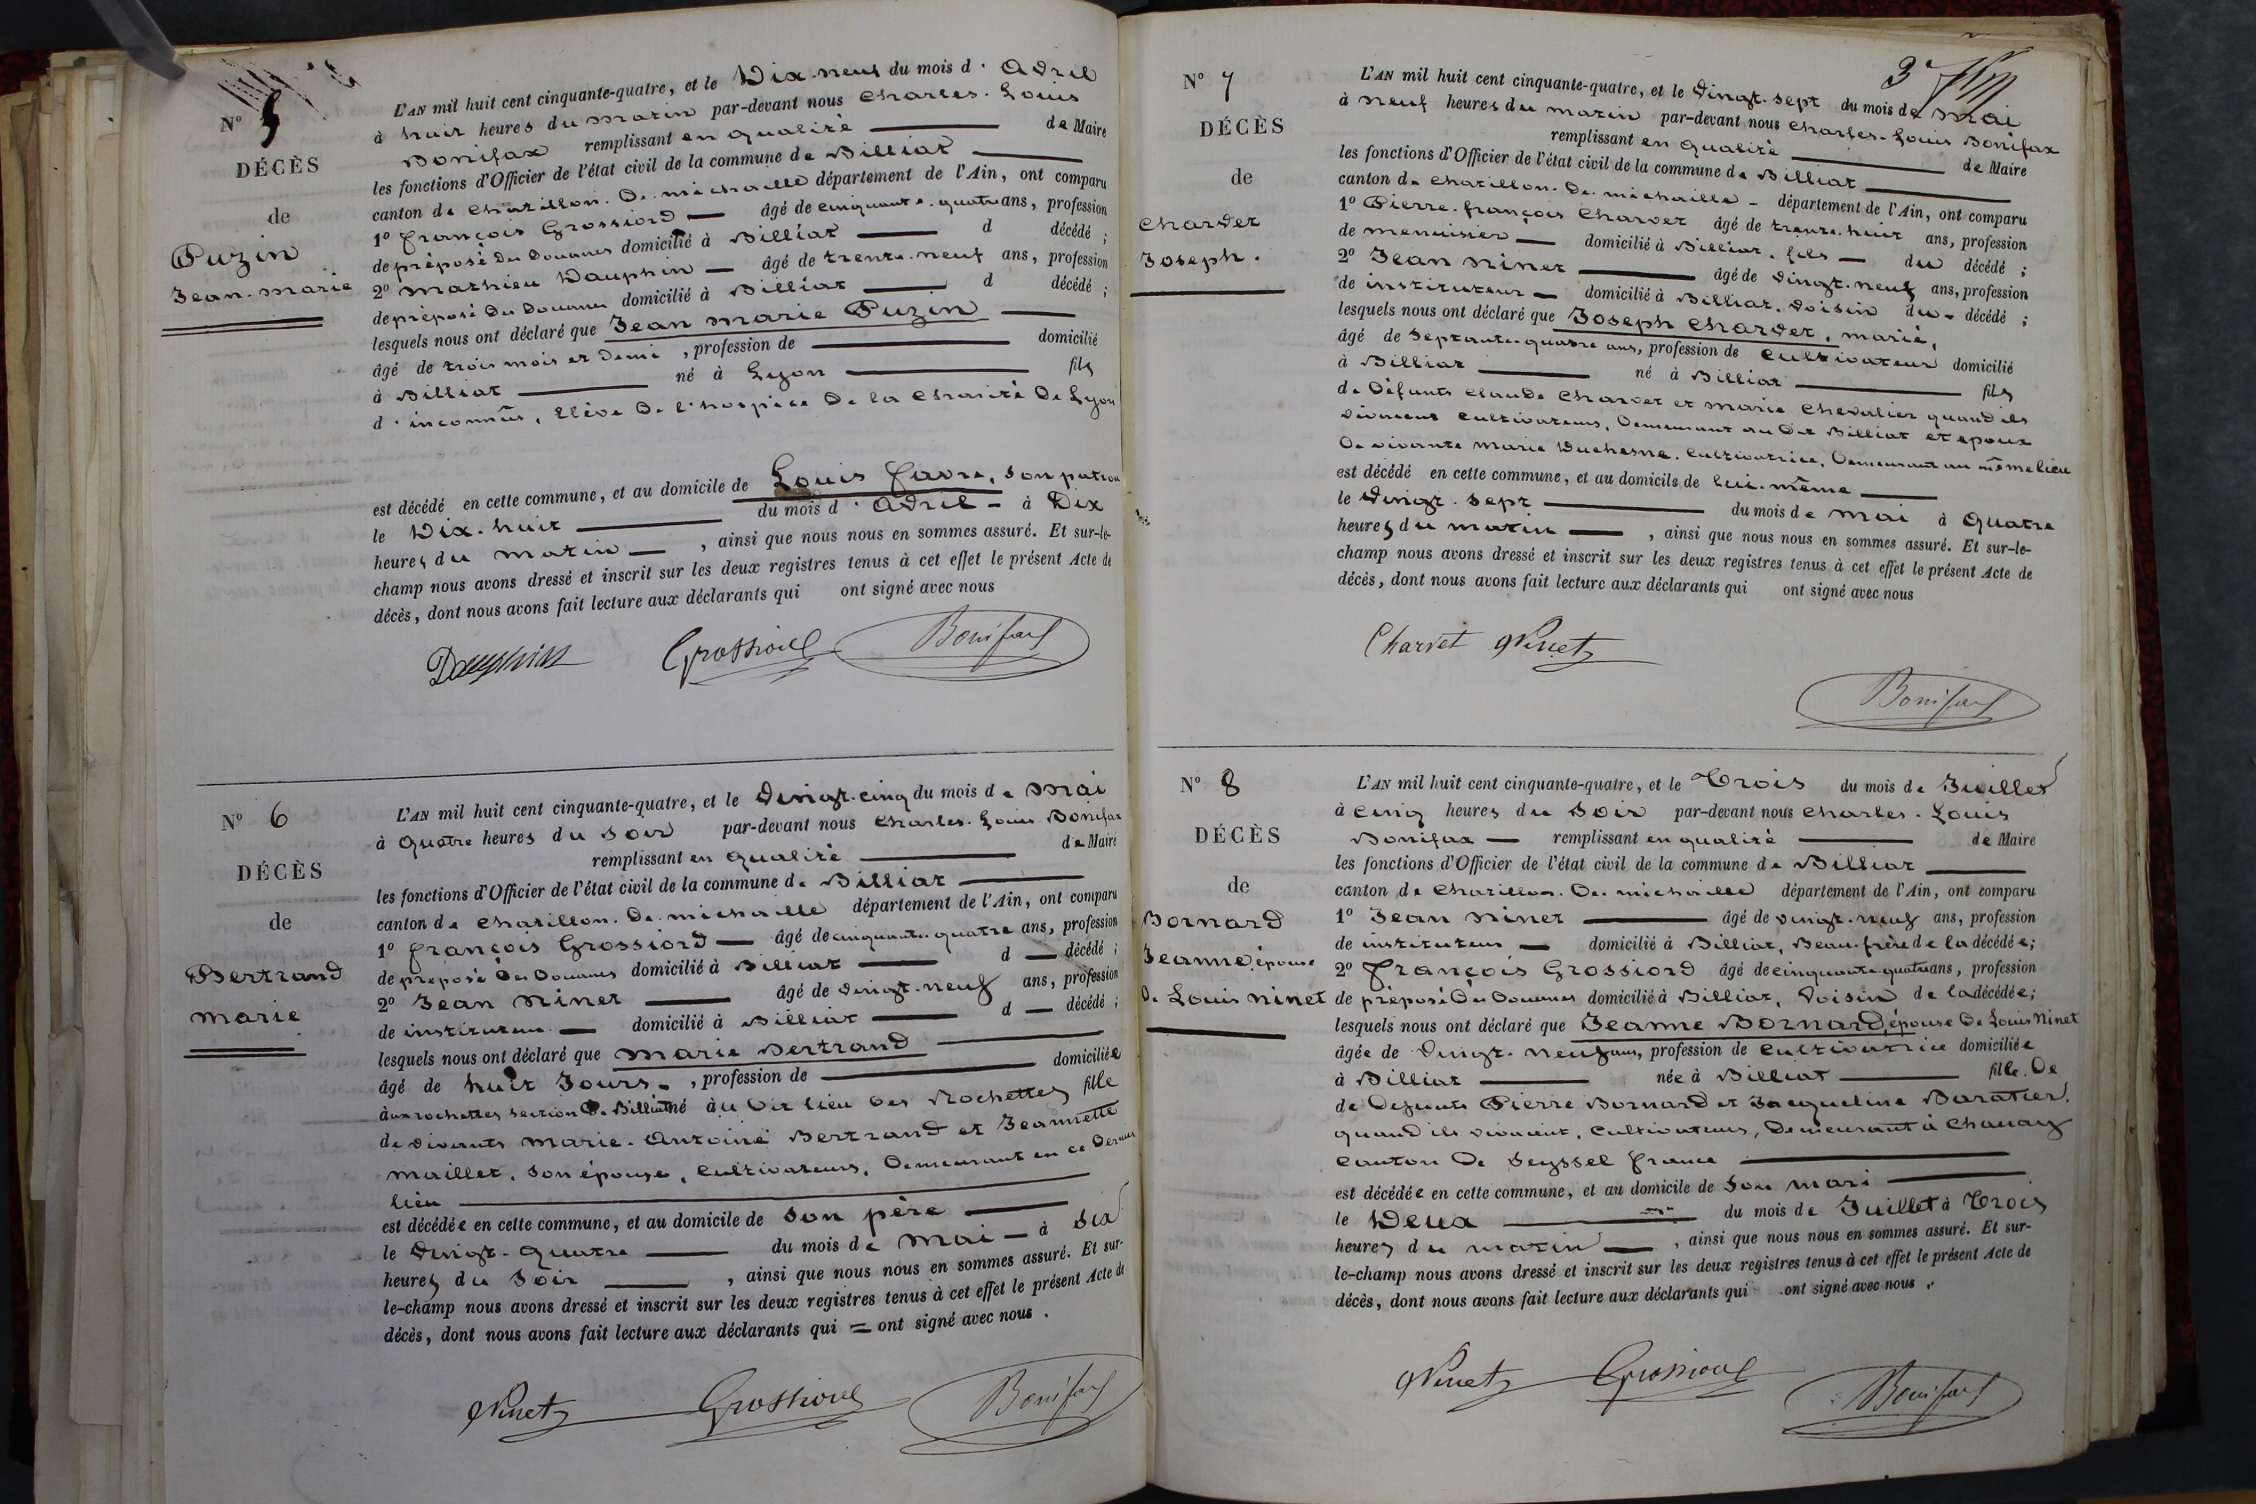 N° 5
DÉCÈS
de
Puzin
Jean-marie
L'AN mil huit cent cinquante-quatre, et le Dix-neuf du mois d'avril
à huit heures du matin par-devant nous Charles-Louis
Bonifax remplissant en qualité de Maire
les fonctions d'Officier de l'état civil de la commune de Billiat
canton de Chatillon-De-michaille département de l'Ain, ont comparu
1° françois Grossiord âgé de cinquante-quatre ans, profession
de préposé Des Douanes domicilié à Billiat d décédé ;
2° Mathieu Dauphin âgé de trente-neuf ans, profession
de préposé Des Douanes domicilié à Billiat d décédé ;
lesquels nous ont déclaré que Jean marie Puzin
âgé de trois mois et Demi, profession de domicilié
à Billiat né à Lyon fils
d'inconnus, Elève De l'hospice De la Charité De Lyon
est décédé en cette commune, et au domicile de Louis favre, son patron
le Dix-huit du mois d'avril à Dix
heures du matin, ainsi que nous nous en sommes assuré. Et sur-le-
champ nous avons dressé et inscrit sur les deux registres tenus à cet effet le présent Acte de
décès, dont nous avons fait lecture aux déclarants qui ont signé avec nous
Dauphin Grossiord Bonifax
N° 6
DÉCÈS
de
Bertrand
marie
L'AN mil huit cent cinquante-quatre, et le vingt-cinq du mois de mai
à quatre heures du soir par-devant nous Charles-Louis Bonifax
remplissant en qualité de Maire
les fonctions d'Officier de l'état civil de la commune de Billiat
canton de Chatillon-De-michaille département de l'Ain, ont comparu
1° françois Grossiord âgé de cinquante-quatre ans, profession
de préposé Des Douanes domicilié à Billiat d décédé ;
2° Jean Ninet âgé de vingt-neuf ans, profession
de instituteur domicilié à Billiat d décédé ;
lesquels nous ont déclaré que marie Bertrand
âgé de huit Jours, profession de domiciliée
à aux rochettes section De Billiat né àu Dit lieu Des Rochettes fille
de vivants marie-Antoine Bertrand et Jeannette
maillet, son épouse, Cultivateurs, Demeurant en ce Dernier
lieu
est décédée en cette commune, et au domicile de son père
le vingt-quatre du mois de mai à six
heures du soir, ainsi que nous nous en sommes assuré. Et sur-
le-champ nous avons dressé et inscrit sur les deux registres tenus à cet effet le présent Acte de
décès, dont nous avons fait lecture aux déclarants qui = ont signé avec nous.
Ninet Grossiord Bonifax
3e
N° 7
DÉCÈS
de
Charvet
Joseph.
L'AN mil huit cent cinquante-quatre, et le vingt-sept du mois de mai
à neuf heures du matin par-devant nous Charles-Louis Bonifax
remplissant en qualité de Maire
les fonctions d'Officier de l'état civil de la commune de Billiat
canton de Chatillon-De-michaille département de l'Ain, ont comparu
1° Pierre-françois Charvet âgé de trente-huit ans, profession
de menuisier domicilié à Billiat, fils du décédé ;
2° Jean Ninet âgé de vingt-neuf ans, profession
de instituteur domicilié à Billiat, voisin du décédé ;
lesquels nous ont déclaré que Joseph Charvet, marié,
âgé de Septante-quatre ans, profession de Cultivateur domicilié
à Billiat né à Billiat fils
de Défunts Claude Charvet et marie Chevalier quand ils
vivaient Cultivateurs, Demeurant au Dit Billiat et époux
De vivante Marie Duchesne, Cultivatrice, Demeurant au même lieu
est décédé en cette commune, et au domicile de lui-même
le vingt-sept du mois de mai à quatre
heures du matin, ainsi que nous nous en sommes assuré. Et sur-le-
champ nous avons dressé et inscrit sur les deux registres tenus à cet effet le présent Acte de
décès, dont nous avons fait lecture aux déclarants qui ont signé avec nous
Charvet Ninet
Bonifax
N° 8
DÉCÈS
de
Bornard
Jeanne épouse
De Louis Ninet
L'AN mil huit cent cinquante-quatre, et le Trois du mois de Juillet
à cinq heures du soir par-devant nous Charles-Louis
Bonifax remplissant en qualité de Maire
les fonctions d'Officier de l'état civil de la commune de Billiat
canton de Chatillon-De-michaille département de l'Ain, ont comparu
1° Jean Ninet âgé de vingt-neuf ans, profession
de instituteur domicilié à Billiat, Beau-frère de la décédée ;
2° François Grossiord âgé de cinquante-quatre ans, profession
de préposé Des Douanes domicilié à Billiat, voisin de la décédée ;
lesquels nous ont déclaré que Jeanne Bornard, épouse De Louis Ninet
âgée de vingt-neuf ans, profession de Cultivatrice domiciliée
à Billiat née à Billiat fille De
de Défunts Pierre Bornard et Jacqueline Baratier,
quand ils vivaient, Cultivateurs, Demeurant à Chanay
Canton De Seyssel france
est décédée en cette commune, et au domicile de son mari
le Deux du mois de Juillet à Trois
heures du matin, ainsi que nous nous en sommes assuré. Et sur-
le-champ nous avons dressé et inscrit sur les deux registres tenus à cet effet le présent Acte de
décès, dont nous avons fait lecture aux déclarants qui ont signé avec nous.
Ninet Grossiord Bonifax